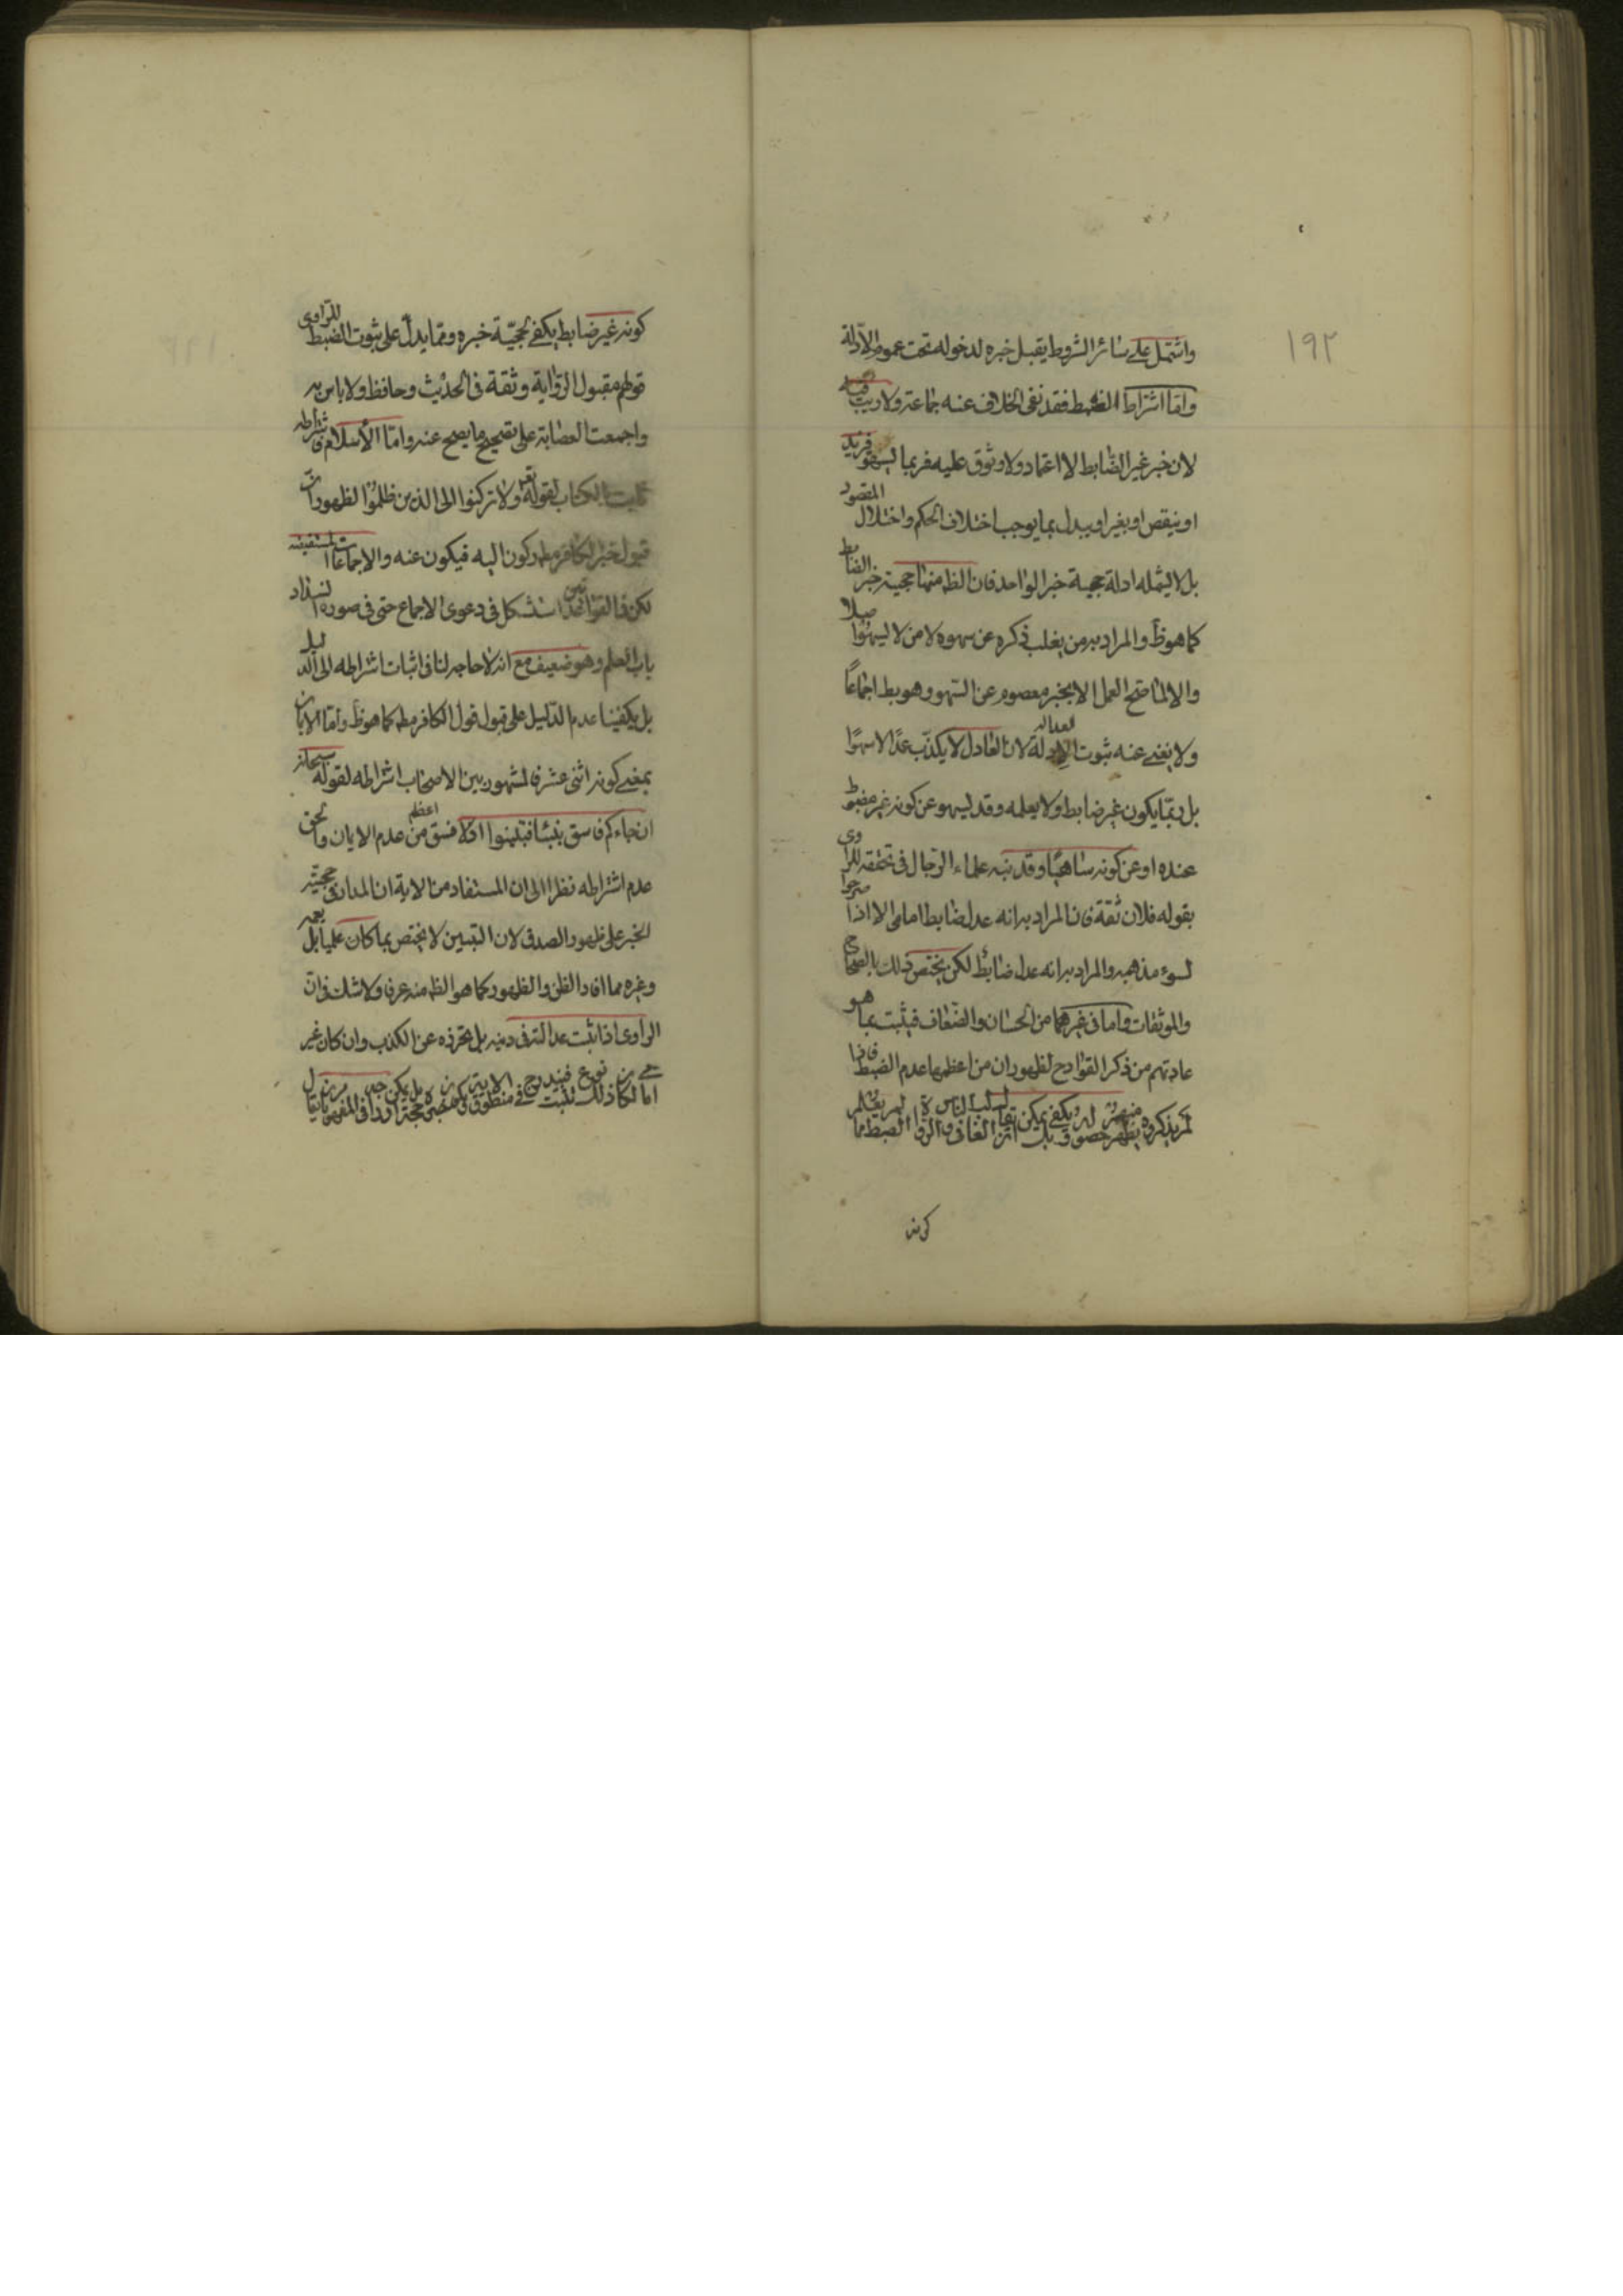 ١٩٢
واشتمل على سائر الشروط يقبل خبره لدخوله تحت عموم الادّلة
وامّا اشتراط الضبط فقد نفى الخلاف عنه جماعة ولا ريب فيه
لان خبر غير الضّابط لا اعتماد ولا وثوق عليه فربما لسهو فزيد
او ينقص او يغير او يبدل بما يوجب اختلاف الحكم واختلال المقصود
بل لا يشمله ادلة حجية خبر الواحد فان الظ منها حجية خبر الضابط
كما هو ظ والمراد به من يغلب ذكره عن سهوه لا من لا يسهوا اصلا
والا لما صّح العمل الا بخبر معصوم عن السّهو وهو بط اجماعاً
ولا يغنى عنه ثبوت العدالة لان العادل لا يكذب عمدًا لا سهوًا
بل ربّما يكون غير ضابط ولا يعلمه وقد ليسهو عن كونه غير مضبوط
عنده او عن كونه ساهيًا وقد نبه علماء الرّجال فى تحققه للراوى
بقوله فلان ثقة فان المراد به انه عدل ضابط امامى الا اذا صرحوا
لسوء مذهبه والمراد به انه عدل ضابط لكن يختص ذلك بالصحاح
والموثقات واما فى غيرهما من الحسان والضّعاف فيثبت بما هو
عادتهم من ذكر القوادح لظهور ان من اعظمها عدم الضبط فاذا
لم يذكروه يظهر حصوله ويكفى
كونه
كونه غير ضابط يكفى لحجيّة خبره وممّا يدلّ على ثبوت الضبط للرّاوى
قولهم مقبول الرّواية وثقة فى الحديث وحافظ ولا باس به
واجمعت العصابة على تصحيح ما يصح عنه وامّا الأسلام فاشتراطه
ثابت بالكتاب لقوله تع ولا تركنوا الى الذين ظلمُوا لظهور انّ
قبول خبر الكافر مط ركون اليه فيكون عنه والاجماعات المستفيضه
لكن فى القوانين استشكل فى دعوى الاجماع حتى فى صورة انسداد
باب العلم وهو ضعيف مع انه لا حاجه لنا فى اثبات اشتراطه الى الدليل
بل يكفينا عدم الدّليل على قبول قول الكافر مط كما هو ظ وامّا الايمان
بمعنى كونه اثنى عشرى فالمشهور بين الاصحاب اشتراطه لقوله سبحانه
ان جاءكم فاسق بنبئا فتبينوا اذ لا فسق اعظم من عدم الايمان والحق
عدم اشتراطه نظرا الى ان المستفاد من الاية ان المدار فى حجيّة
الخبر على ظهور الصدق لان التبين لا يختص بما كان علميا بل يعمه
وغيره مما افاد الظن والظهور كما هو الظ منه عرفا ولا شك فى ان
الراوى اذا ثبت عدالته فى دينه بل تحرزه عن الكذب وان كان غير